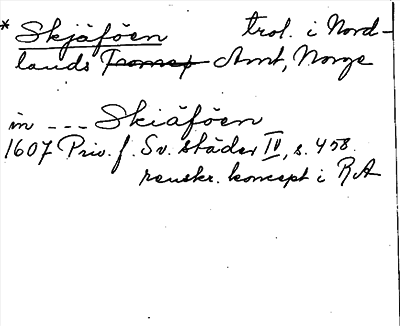 * Skjäföen trol. i Nord-
lands Tromsø Amt, Norge
in --- Skiäföen
1607 Priv. f. Sv. städer IV, s. 458.
renskr. koncept i RA